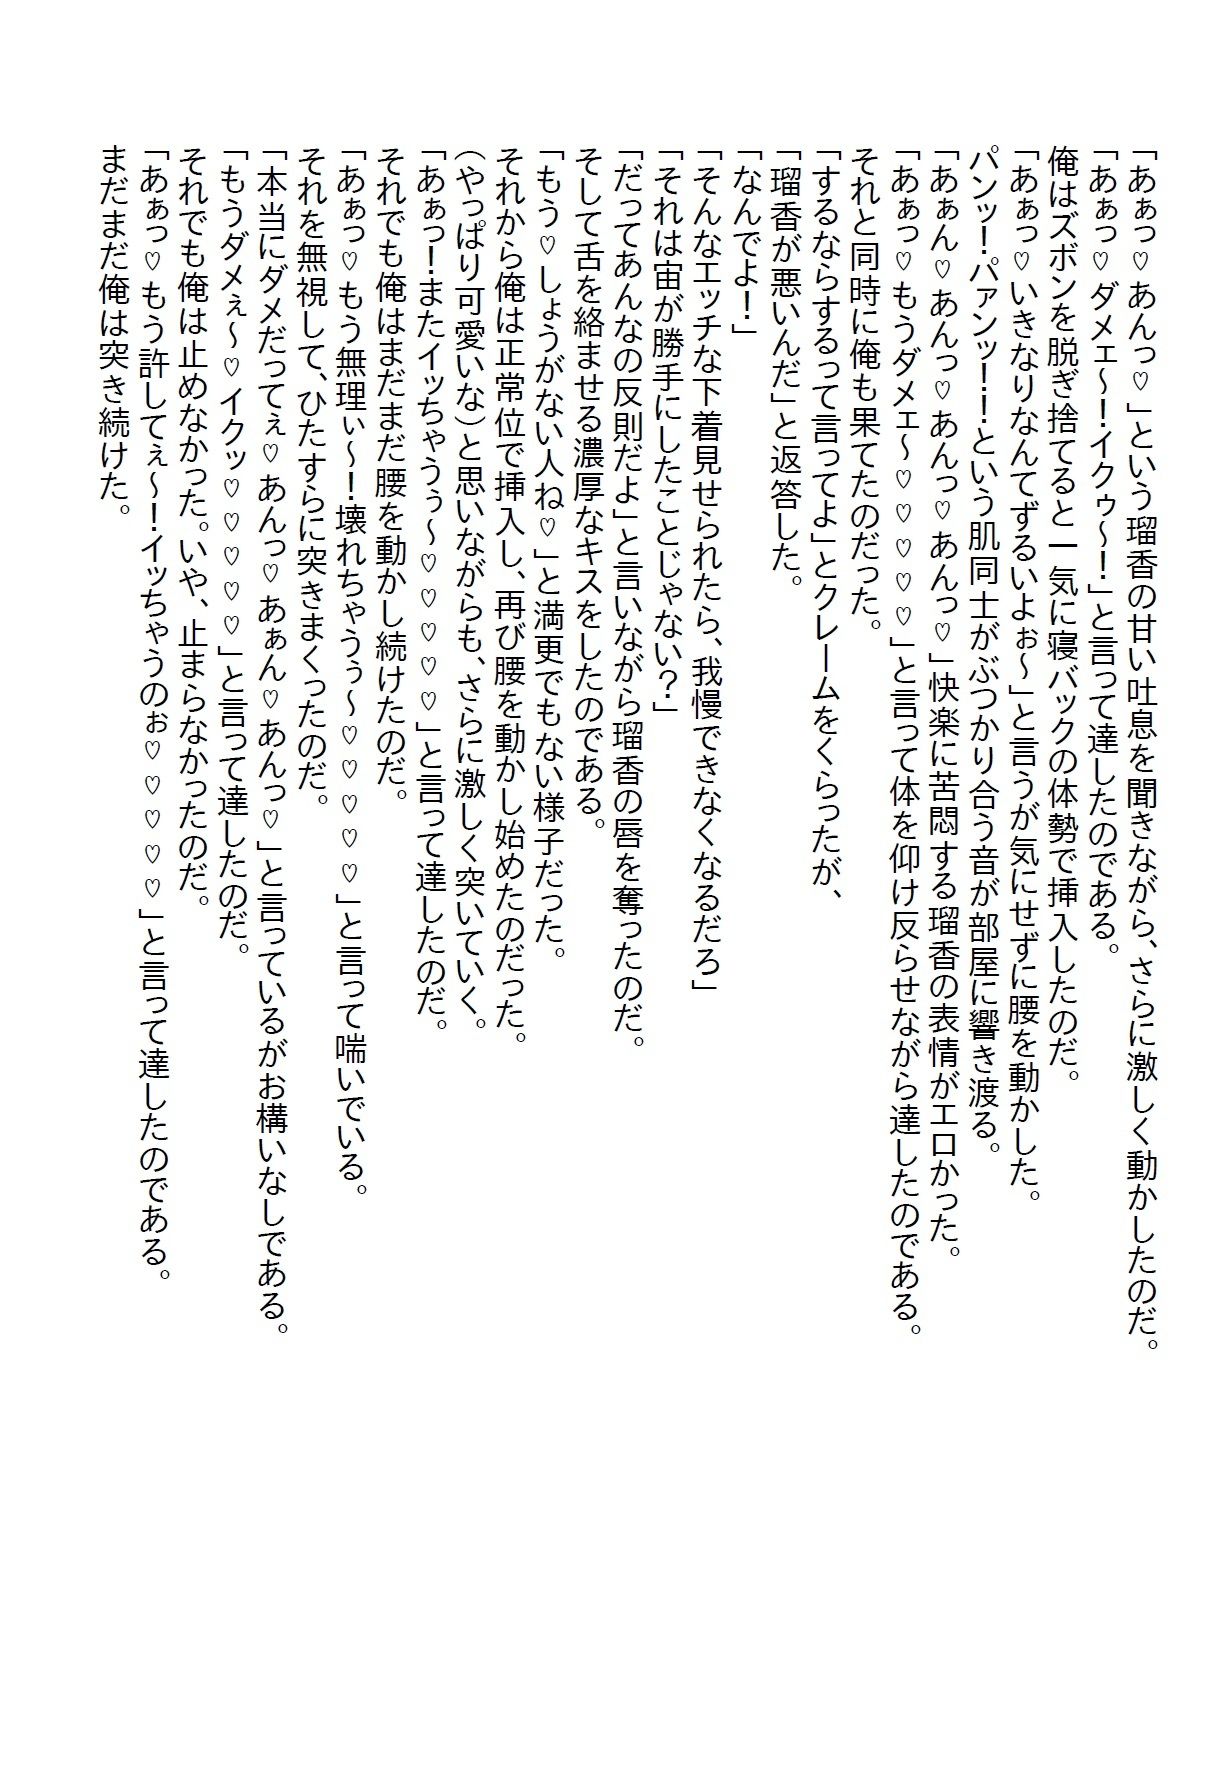 「あぁっ♡あんっ♡」という瑠香の甘い吐息を聞きながら、さらに激しく動かしたのだ。
「あぁっ♡ダメェ～！イクゥ～！」と言って達したのである。
俺はズボンを脱ぎ捨てると一気に寝バックの体勢で挿入したのだ。
「あぁっ♡いきなりなんてずるいよぉ～」と言うが気にせずに腰を動かした。
パンッ！パァンッ！！という肌同士がぶつかり合う音が部屋に響き渡る。
「あぁん♡あんっ♡あんっ♡あんっ♡」快楽に苦悶する瑠香の表情がエロかった。
「あぁっ♡もうダメェ～♡♡♡♡♡」と言って体を仰け反らせながら達したのである。
それと同時に俺も果てたのだった。
「するならするって言ってよ」とクレームをくらったが、
「瑠香が悪いんだ」と返答した。
「なんでよ！」
「そんなエッチな下着見せられたら、我慢できなくなるだろ」
「それは宙が勝手にしたことじゃない？」
「だってあんなの反則だよ」と言いながら瑠香の唇を奪ったのだ。
そして舌を絡ませる濃厚なキスをしたのである。
「もう♡しょうがない人ね♡」と満更でもない様子だった。
それから俺は正常位で挿入し、再び腰を動かし始めたのだった。
（やっぱり可愛いな）と思いながらも、さらに激しく突いていく。
「あぁっ！またイッちゃうぅ～♡♡♡♡♡」と言って達したのだ。
それでも俺はまだまだ腰を動かし続けたのだ。
「あぁっ♡もう無理ぃ～！壊れちゃうぅ～♡♡♡♡♡」と言って喘いでいる。
それを無視して、ひたすらに突きまくったのだ。
「本当にダメだってぇ♡あんっ♡あぁん♡あんっ♡」と言っているがお構いなしである。
「もうダメぇ～♡イクッ♡♡♡♡♡」と言って達したのだ。
それでも俺は止めなかった。いや、止まらなかったのだ。
「あぁっ♡もう許してぇ～！イッちゃうのぉ♡♡♡♡♡」と言って達したのである。
まだまだ俺は突き続けた。